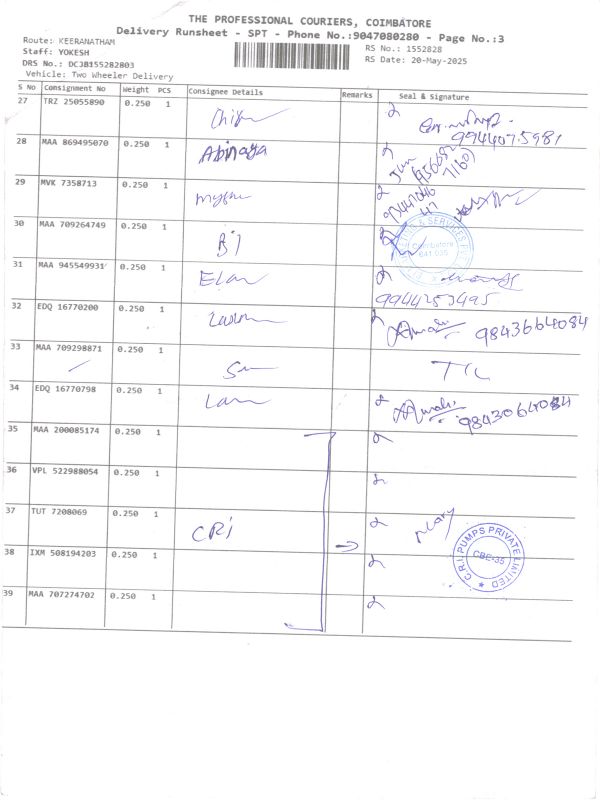 THE PROFESSIONAL COURIERS, COIMBATORE
Delivery Runsheet - SPT - Phone No.:9047080280 - Page No.:3
Route: KEERANATHAM
Staff: YOKESH
DRS No.: DCJB155282803
Vehicle: Two Wheeler Delivery
RS No.: 1552828
RS Date: 20-May-2025
S No Consignment No Weight PCS Consignee Details Remarks Seal & Signature
27 TRZ 25055890 0.250 1
9944075981
28 MAA 869495070 0.250 1 Abinaya
29 MVK 7358713 0.250 1
30 MAA 709264749 0.250 1
Coimbatore
641 035
31 MAA 945549931 0.250 1 Elan
9944253495
32 EDQ 16770200 0.250 1 9843664084
33 MAA 709298871 0.250 1
34 EDQ 16770798 0.250 1 9843064084
35 MAA 200085174 0.250 1
36 VPL 522988054 0.250 1
37 TUT 7208069 0.250 1 CRI
C.R.I. PUMPS PRIVATE LIMITED
CBE-35
38 IXM 508194203 0.250 1
39 MAA 707274702 0.250 1